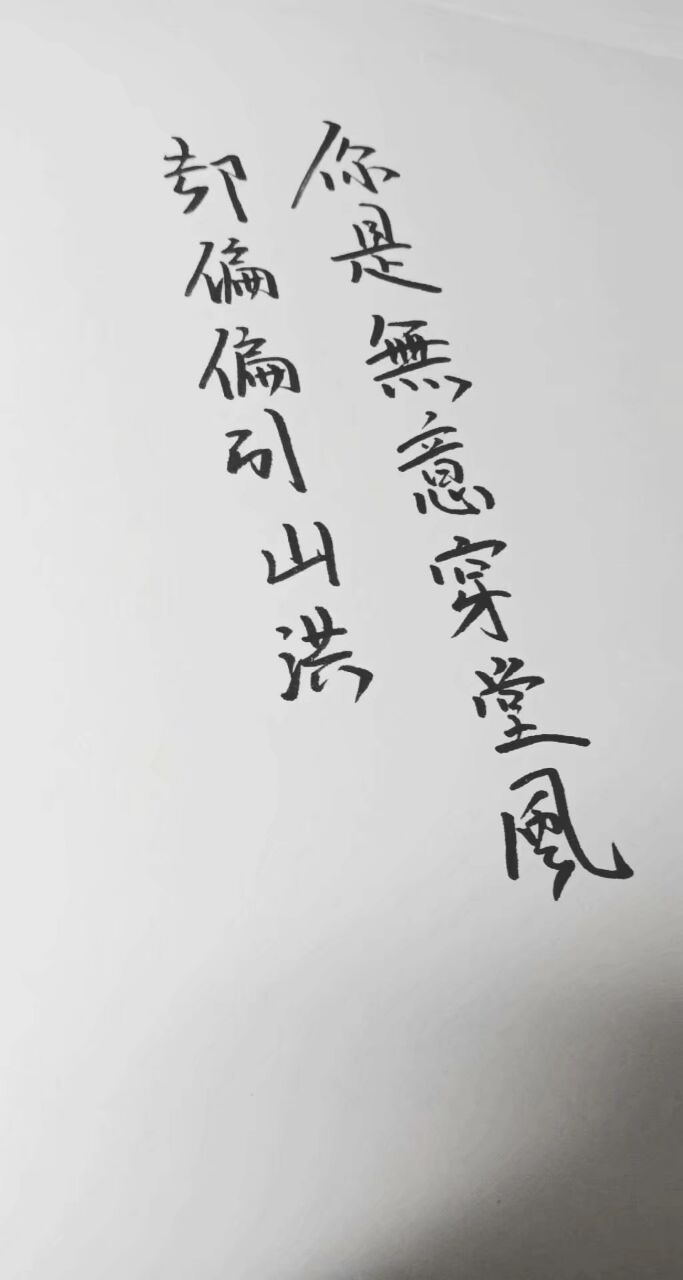 你是無意穿堂風
却偏偏引山洪